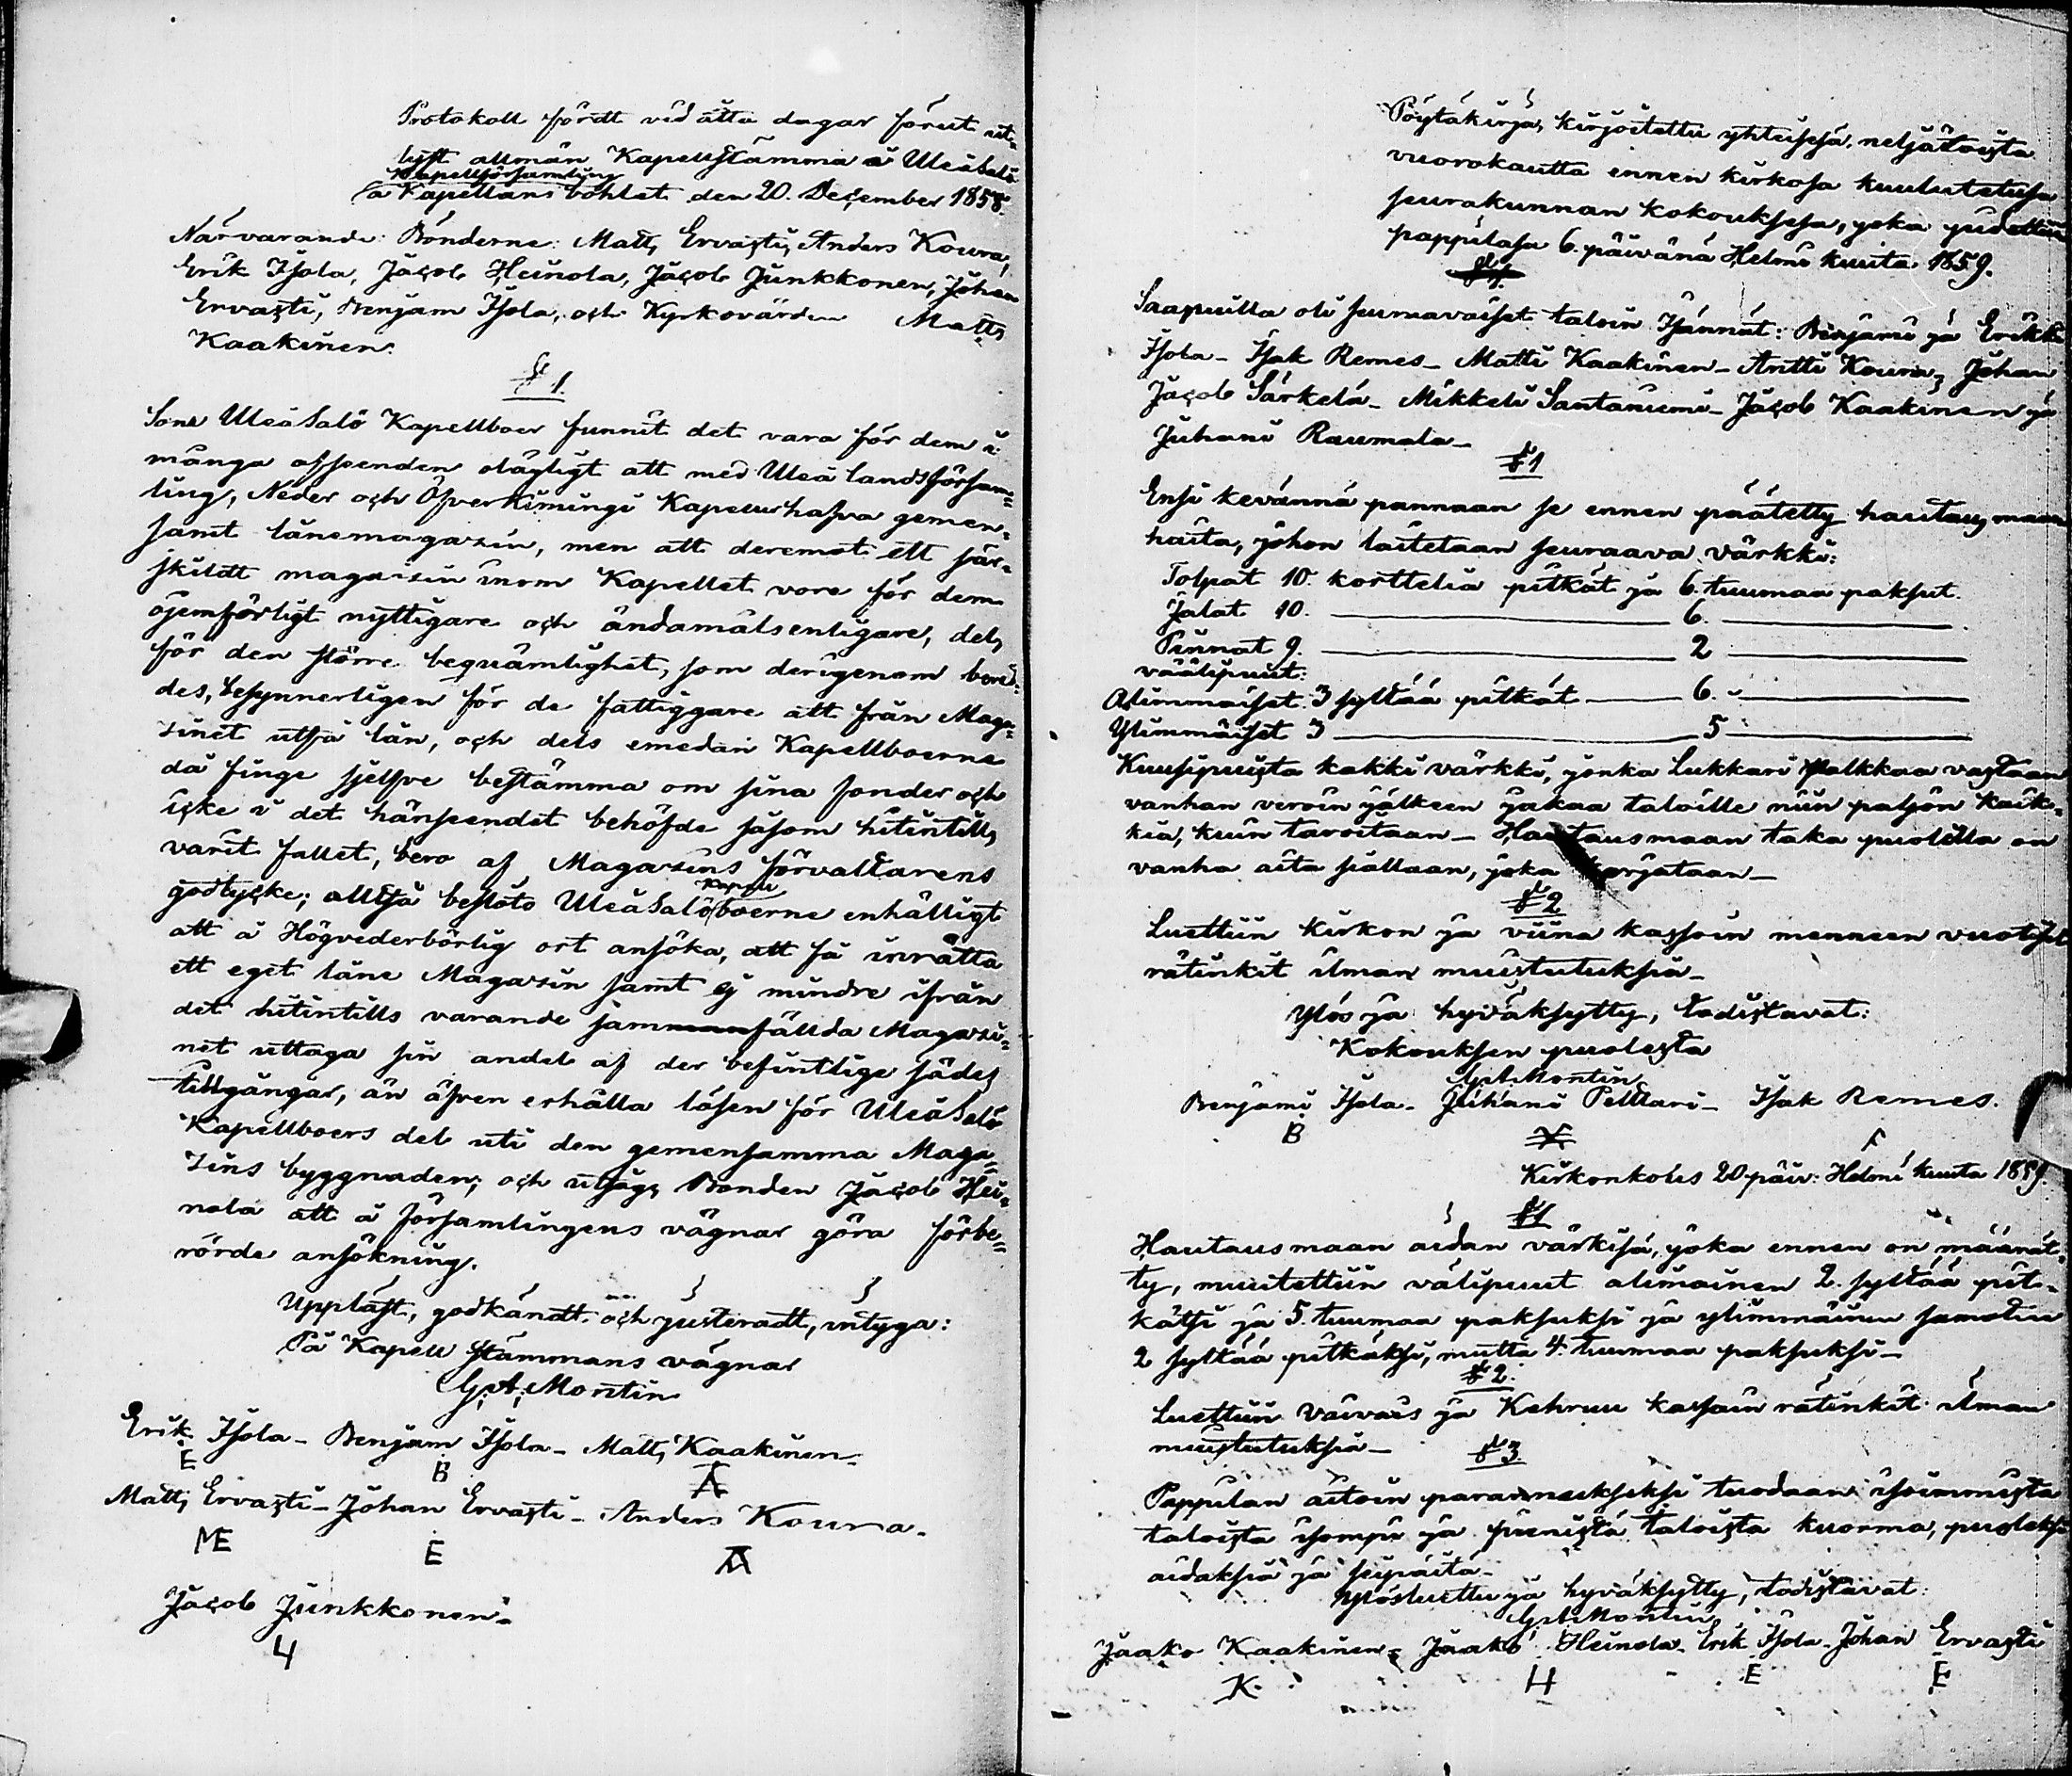 Protokoll fördt vid åtta dagar förut ut-
lyst allmän Kapellstämma i Uleåsalo
Kapellförsamling
å Kapellans bohlet den 20. December 1858.
Närvarande: Bönderne: Matts Ervasti, Anders Koura,
Erik Isola, Jacob Heinola, Jacob Junkkonen, Johan
Ervasti, Benjam Isola, och Kyrkovärden Matts
Kaakinen.
§ 1.
Som Uleåsalo Kapellboer funnit det vara för dem i
många afseenden olägligt att med Uleå landsförsam=
ling, Neder och Öfverkiimingi Kapeller hafva gemen=
samt lånemagasin, men att deremot ett sär=
skildt magasin inom Kapellet vore för dem
ojemförligt nyttigare och ändamålsenligare, dels
för den större beqvämlighet, som derigenom bered=
des, besynnerligen för de fattiggare att från Maga=
sinet utfå lån, och dels emedan Kapellboerne
då finge sjelfve bestämma om sina fonder och
icke i det hänseendet behöfde såsom hitintills
varit fallet, bero af Magasins förvaltarens
godtycke; alltså beslöto Uleåsalo Kapellboerne enhälligt
att å Högvederbörlig ort ansöka, att få inrätta
ett eget låne Magasin samt ej mindre ifrån
det hitintills varande samfällda Magasi=
net uttaga sin andel af der befintlige sädes
tillgångar, än äfven erhålla lösen för Uleåsalo
Kapellboers del uti den gemensamma Maga=
sins byggnaden; och utsågs Bonden Jacob Hei=
nola att å församlingens vägnar göra förbe=
rörde ansökning.
Uppläst, godkändt och justeradt, intyga:
På Kapell Stämmans vägnar
G. A. Montin
Erik Isola - Benjam Isola - Matts Kaakinen -
E B
Matts Ervasti - Johan Ervasti - Anders Koura.
ME E A
Jacob Junkkonen.
4
Pöytäkirja, kirjoitettu yhteisesä, neljätoista
vuorokautta ennen kirkosa kuulutetusa
seurakunnan kokouksesa, joka pidettiin
pappilasa 6. päivänä Helmi kuuta 1859.
Saapuilla oli seuraavaiset taloin Isännät: Benjami ja Erikki
Isola - Isak Remes - Matti Kaakinen - Antti Koura - Johan
Jacob Särkelä - Mikkeli Santaniemi - Jacob Kaakinen ja
Juhani Raumala -
§ 1
Ensi kevännä pannaan se ennen päätetty hautausmaan
haita, johon laitetaan seuraava värkki:
Tolpat 10. korttelia pitkät ja 6. tuumaa paksut.
Jalat 10. 6.
Piinnat 9. 2
väälipuut:
Alimmaiset 3 syltää pitkät 6.
Ylimmäiset 3 5
Kuusipuista kakki värkki, jonka Lukkari palkkaa vastaan
vanhan veroin jälkeen jakaa taloille niin paljon kaik=
kia, kuin tarvitaan - Hautausmaan taka puolella on
vanha aita siallaan, joka korjataan -
§ 2
Luettiin kirkon ja viina kassoin menneen vuotiset
rätinkit ilman muistutuksia -
Ylös ja hyväksytty, todistavat:
Kokouksen puolesta
G. A. Montin
Benjami Isola - Juhani Pelttari - Isak Remes.
B
Kirkonkokus 20 päiv: Helmi kuuta 1859.
§ 1
Hautausmaan aidan värkisä, joka ennen on määrät=
ty, muutettiin välipuut alimainen 2. syltää pit=
kätsi ja 5. tuumaa paksuksi ja ylimmäinen samotin
2 syltää pitkäksi, mutta 4. tuumaa paksuksi -
§ 2.
Luettiin Vaivais ja Kehruu kassain rätinkit ilman
muistutuksia -
§ 3
Pappilan aitoin parannukseksi tuodaan isoimmista
taloista isompi ja pienistä taloista kuorma, puoleksi
aidaksia ja seipäitä -
Ylösluettu ja hyväksytty, todistavat:
G. A. Montin
Jaako Kaakinen - Jaako Heinola - Erik Isola - Johan Ervasti
K. H E E